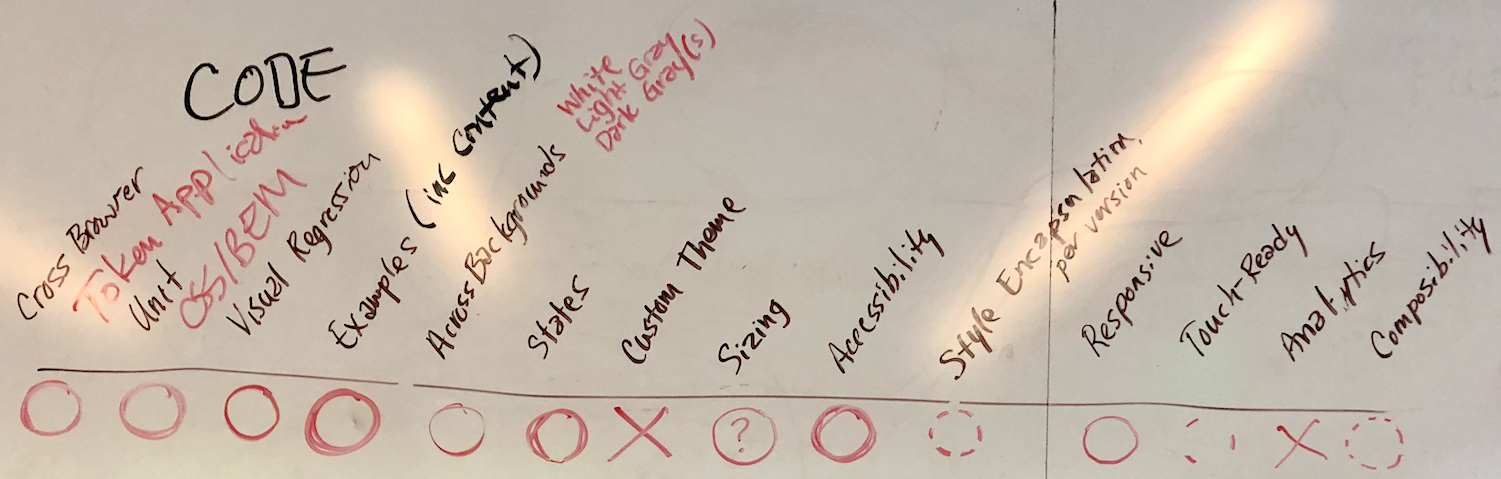 CODE
Cross Browser
Token Application
Unit
CSS/BEM
Visual Regression
Examples (inc Content)
Across Backgrounds
White
Light Gray
Dark Gray(s)
States
Custom Theme
Sizing
Accessibility
Style Encapsulation,
per version
Responsive
Touch-Ready
Analytics
Composibility
?